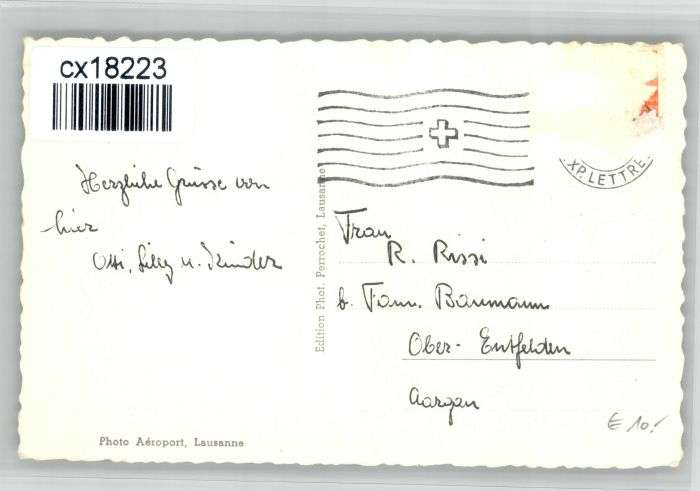 cx18223
XP. LETTRE
Herzliche Grüsse von
hier
Otti, Silly u. Kinder
Edition Phot. Perrochet, Lausanne
Frau
R. Rissi
b. Fam. Baumann
Ober-Entfelden
Aargau
€ 10.-
Photo Aéroport, Lausanne